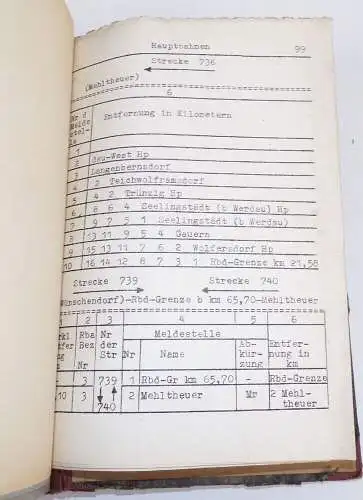 Hauptbahnen 99
Strecke 736
(Mehltheuer)
6
Nr d
Melde
stel-
le
Entfernung in Kilometern
1
2 dau-West Hp
3 Langenbernsdorf
4 2 Teichwolframsdorf
5 4 2 Trünzig Hp
6 8 6 4 Seelingstädt (b Werdau) Hp
7 9 7 5 1 Seelingstädt (b Werdau)
8 13 11 9 5 4 Gauern
9 15 13 11 7 6 2 Wolfersdorf Hp
10 16 14 12 8 7 3 1 Rbd-Grenze km 21,58
Strecke 739 Strecke 740
Wünschendorf)-Rbd-Grenze b km 65,70-Mehltheuer
1 2 3 4 5 6
Rba Bez Nr
Nr der Str
Meldestelle
Nr Name
Ab-
kür-
zung
Entfer-
nung in
km
- 3 739 1 Rbd-Gr km 65,70 - Rbd-Grenze
10 3 740 2 Mehltheuer Mr 2 Mehl-
theuer